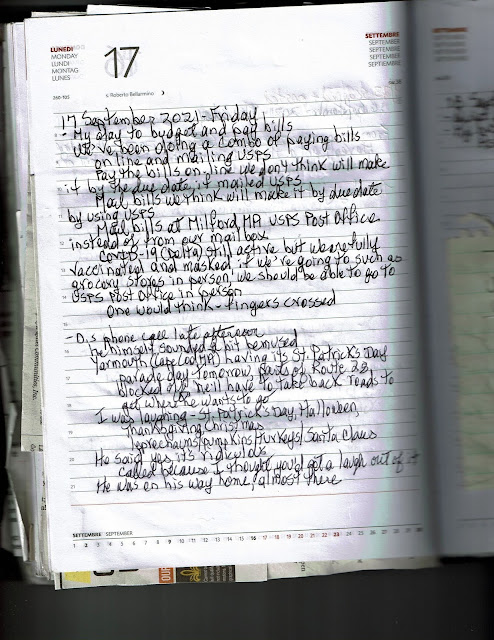 LUNEDÌ
MONDAY
LUNDI
MONTAG
LUNES
17
SETTEMBRE
SEPTEMBER
SEPTEMBRE
SEPTEMBER
SEPTIEMBRE
260-105
s. Roberto Bellarmino
17 September 2021 - Friday
- My day to budget and pay bills
We've been doing a combo of paying bills
on line and mailing USPS
Pay the bills on line we don't think will make
it by the due date, if mailed USPS
Mail bills we think will make it by due date
by using USPS
Mail bills at Milford, MA USPS Post Office
instead of from our mail box
COVID-19 (Delta) still active but we're fully
vaccinated and masked, if we're going to such as
grocery stores in person, we should be able to go to
USPS Post Office in person
One would think - fingers crossed
- D.'s phone call late afternoon
he himself sounded a bit bemused
Yarmouth (Cape Cod, MA) having its St. Patrick's Day
parade day tomorrow, parts of Route 28
blocked off, he'll have to take back roads to
get where he wants to go
I was laughing - St. Patrick's Day, Halloween,
Thanksgiving, Christmas
leprechauns/pumpkins/turkeys/Santa Claus
He said yes, it's ridiculous
called because I thought you'd get a laugh out of it
He was on his way home, almost there
SETTEMBRE SEPTEMBER
1 2 3 4 5 6 7 8 9 10 11 12 13 14 15 16 17 18 19 20 21 22 23 24 25 26 27 28 29 30